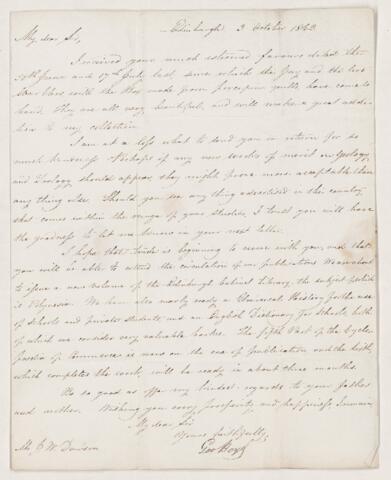 Edinburgh 3 October 1842
My dear Sir,
I received your much esteemed favours dated the
30th June and 17th July last, since which the Jay and the two
with the Box made from porcupine quills have come to
hand. They are all very beautiful, and will make a great addi-
tion to my collection.
I am at a loss what to send you in return for so
much kindness. Perhaps if any new works of merit in Geology
and Zoology should appear, they might prove more acceptable than
any thing else. Should you see any thing advertised in this country
that comes within the range of your studies, I trust you will have
the goodness to let me know in your next letter.
I hope that trade is beginning to revive with you, and that
you will be able to extend the circulation of our publications. We are about
to issue a new volume of the Edinburgh Cabinet Library, the subject of which
is Polynesia. We have also nearly ready a Universal History for the use
of Schools and private students, and an English Dictionary for Schools, both
of which we consider very valuable books. The fifth Part of the Cyclo-
paedia of Commerce is now on the eve of publication and the sixth,
which completes the work, will be ready in about three months.
Be so good as offer my kindest regards to your father
and mother. Wishing you every prosperity and happiness, I remain
My dear Sir
Yours faithfully,
Geo Boyd
Mr. J. W. Dawson